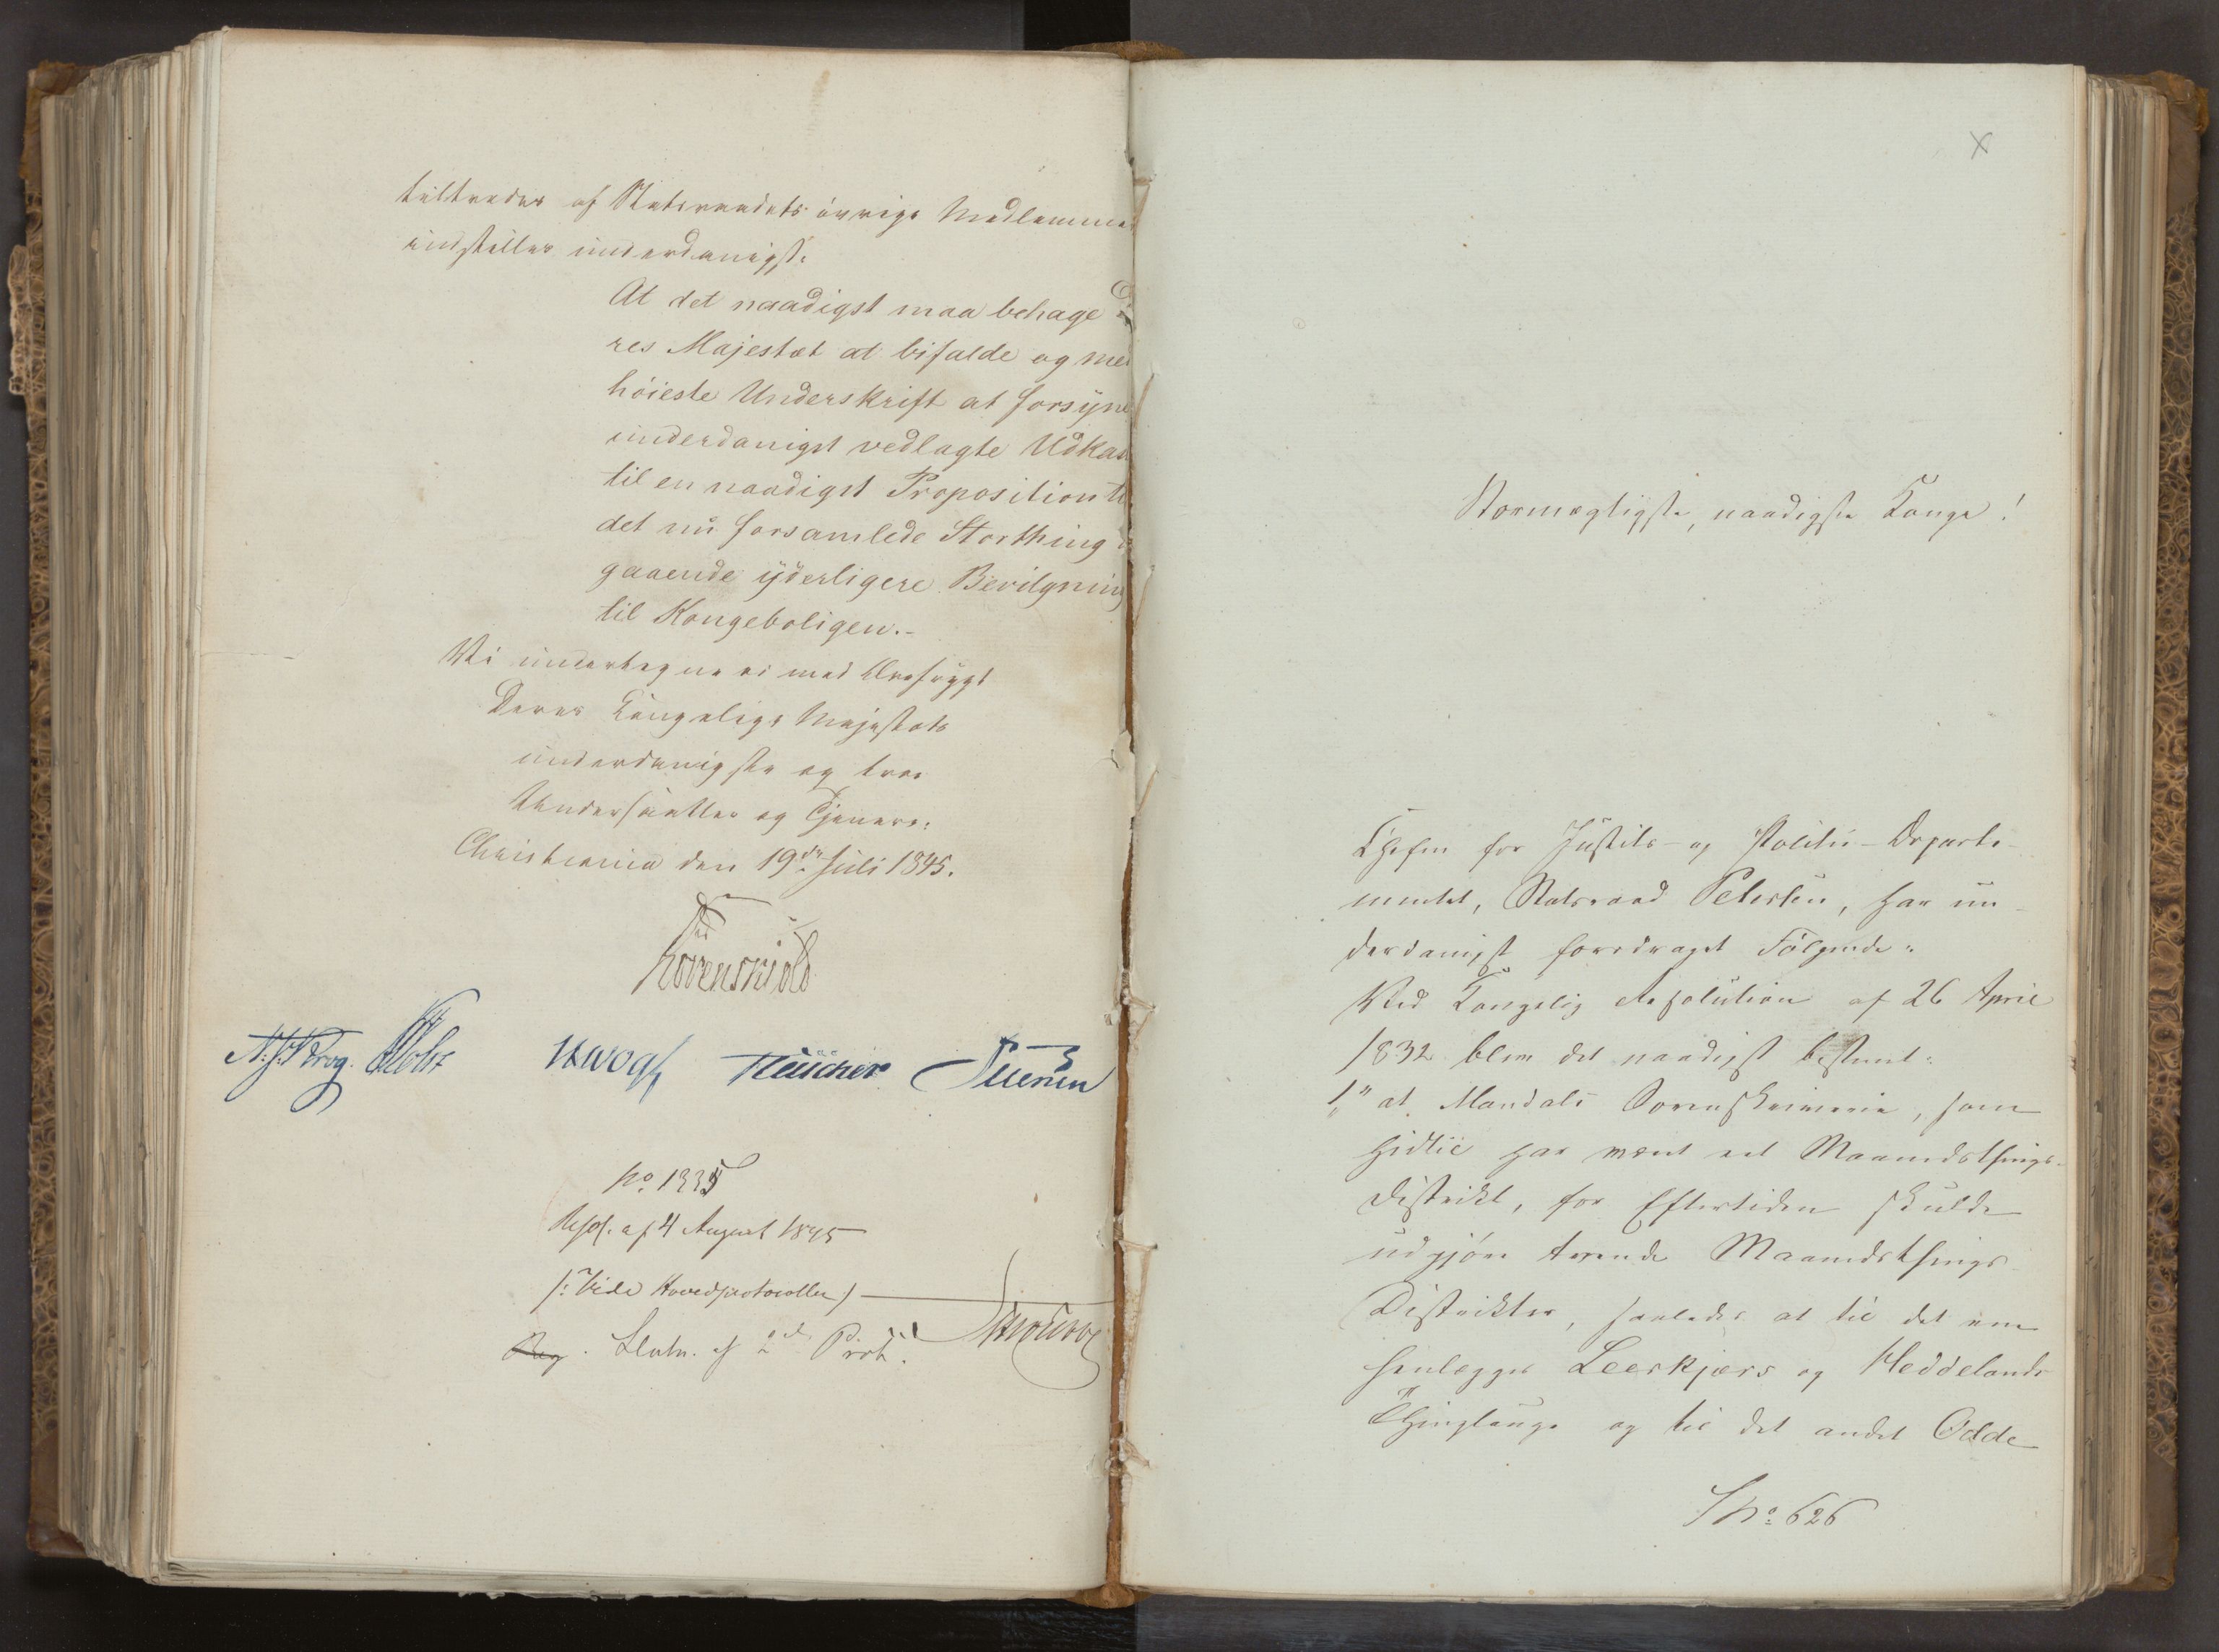 tiltrædes af Statsraadets øvrige Medlemmer
indstilles underdanigst:
At det naadigst maa behage De
res Majestæt at bifalde og med
høieste Underskrift at forsyne
underdanigst vedlagte Udkast
til en naadigst Proposition til
det nu forsamlede Storthing
gaaende yderligere Bevilgning
til Kongeboligen.-
Vi undertegne os med Ærefrygt
Deres Kongelige Majestæts
underdanigste og troe
Undersaatter og Tjenere.
Christiania den 19de Juli 1845.
Løvenskiold
N. J. Krog. Holst Vogt Petersen
No. 1335
Resol. af 4 August 1845
/: Vide Hovedprotocollen /
x
Stormægtigste, naadigste Konge!
Chefen for Justits- og Politie-Departe-
mentet, Statsraad Petersen, har un-
derdanigst foredraget Følgende:
Ved Kongelig Resolution af 26 April
1832 blev det naadigst bestemt:
1" at Mandals Sorenskriverie, som
hidtil har været eet Maanedsthings-
Distrikt, for Eftertiden skulde
udgjøre tvende Maanedsthings-
Distrikter, saaledes at til det ene
henlægges Leerkjærs og Heddelands
Thinglauge og til det andet Odde
No. 626